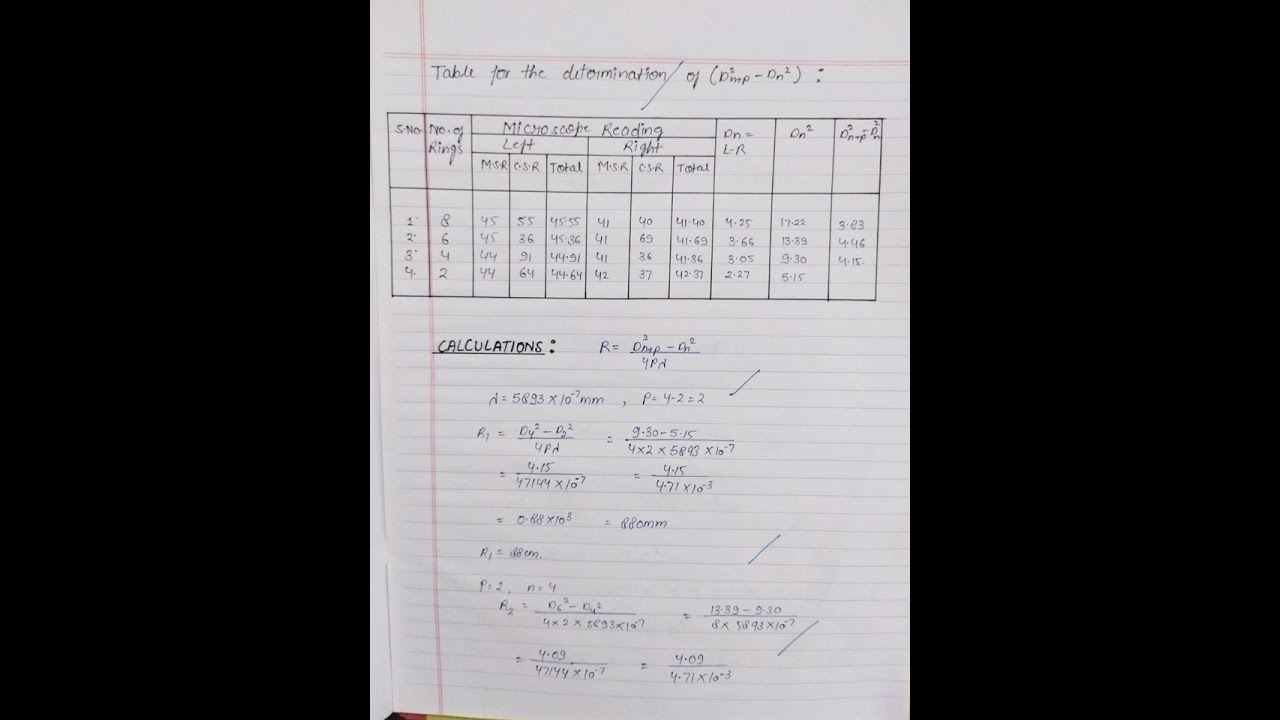 Table for the determination of (D²n+p - Dn²) :
S.No. No. of Rings Microscope Reading Dn = L-R Dn² D²n+p - D²n
Left Right
M.S.R C.S.R Total M.S.R C.S.R Total
1. 8 45 55 45.55 41 40 41.40 4.25 17.22 3.83
2. 6 45 36 45.36 41 69 41.69 3.66 13.39 4.46
3. 4 44 91 44.91 41 36 41.86 3.05 9.30 4.15.
4. 2 44 64 44.64 42 37 42.37 2.27 5.15
CALCULATIONS : R = D²n+p - Dn² / 4Pλ
λ = 5893 × 10⁻⁷ mm , P = 4-2 = 2
R₁ = D4² - D2² / 4Pλ = 9.30 - 5.15 / 4 × 2 × 5893 × 10⁻⁷
= 4.15 / 47144 × 10⁻⁷ = 4.15 / 4.71 × 10⁻³
= 0.88 × 10³ = 880mm
R₁ = 88cm.
P = 2, n = 4
R₂ = D6² - D4² / 4 × 2 × 5893 × 10⁻⁷ = 13.39 - 9.30 / 8 × 5893 × 10⁻⁷
= 4.09 / 47144 × 10⁻⁷ = 4.09 / 4.71 × 10⁻³